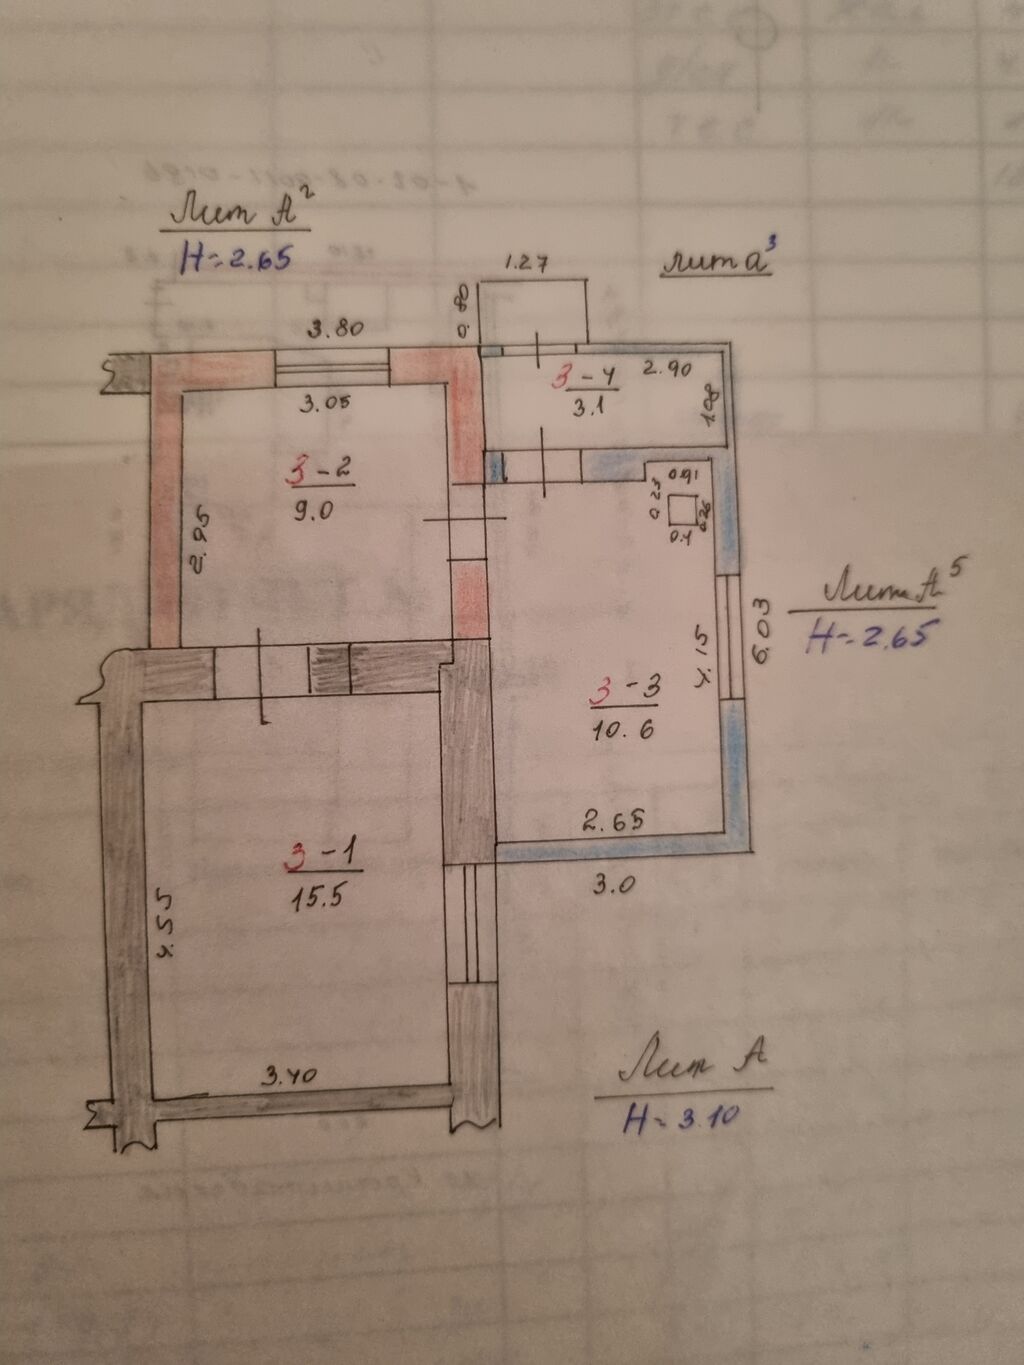 Лит А²
Н=2.65
1.27
лит а³
0.80
3.80
3-4
3.1
2.90
1.08
3.05
3-2
9.0
2.95
0.91
0.25
0.4
Лит А⁵
Н=2.65
6.03
4.15
3-3
10.6
2.65
3.0
3-1
15.5
4.55
3.40
Лит А
Н=3.10